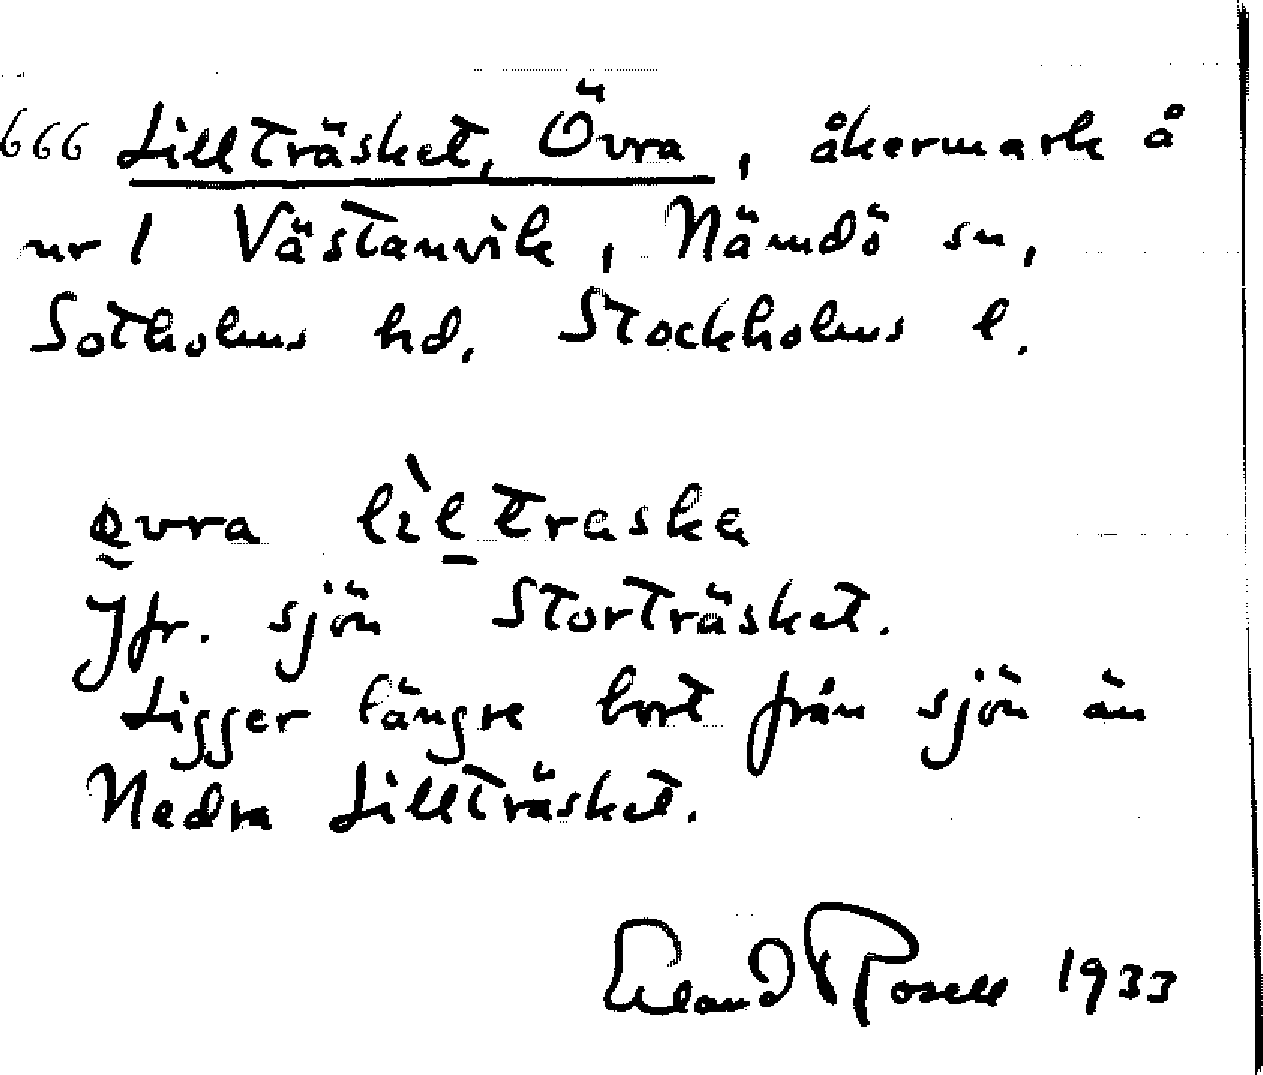 666 Lillträsket, Övra, åkermark å
nr 1 Västanvik, Nämdö sn,
Sotholms hd. Stockholms l.
Jfr. sjön Storträsket.
Ligger längre bort från sjön än
Nedra Lillträsket.
Erland Rosell 1933